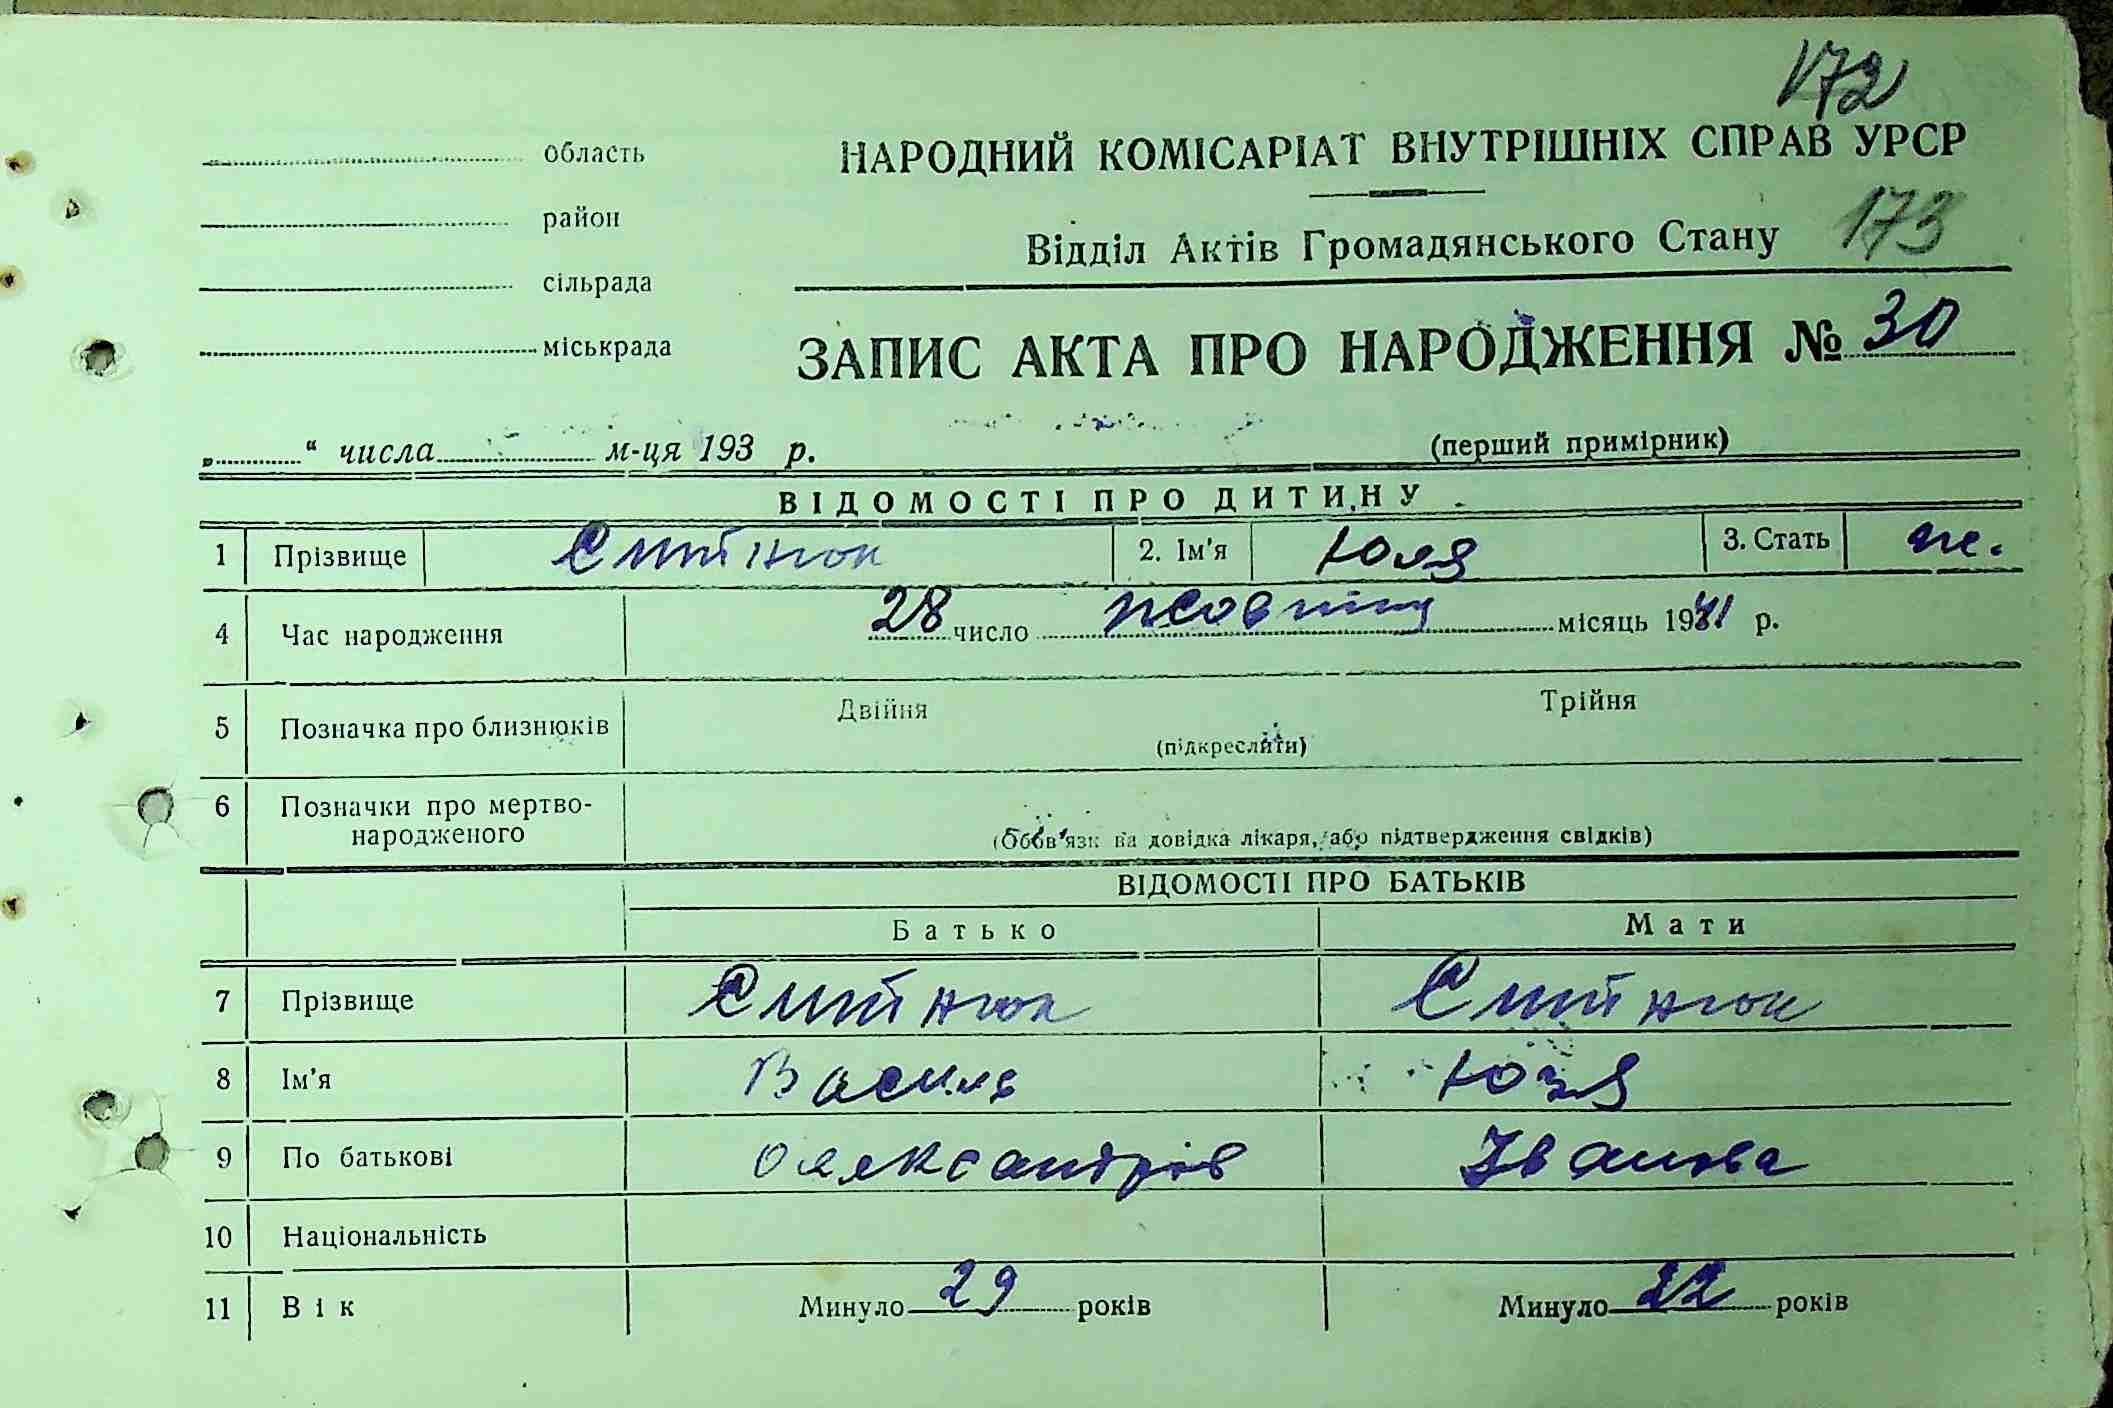 172
область НАРОДНИЙ КОМІСАРІАТ ВНУТРІШНІХ СПРАВ УРСР
район Відділ Актів Громадянського Стану 173
сільрада
міськрада ЗАПИС АКТА ПРО НАРОДЖЕННЯ № 30
„ “ числа м-ця 193 р. (перший примірник)
ВІДОМОСТІ ПРО ДИТИНУ
1 Прізвище 2. Ім'я Юля 3. Стать ж.
4 Час народження 28 число жовтня місяць 1941 р.
5 Позначка про близнюків Двійня Трійня
(підкреслити)
6 Позначки про мертво-
народженого (Обов'язкова довідка лікаря, або підтвердження свідків)
ВІДОМОСТІ ПРО БАТЬКІВ
Батько Мати
7 Прізвище
8 Ім'я Василь Юзя
9 По батькові Олександрів Іванова
10 Національність
11 Вік Минуло 29 років Минуло 22 років